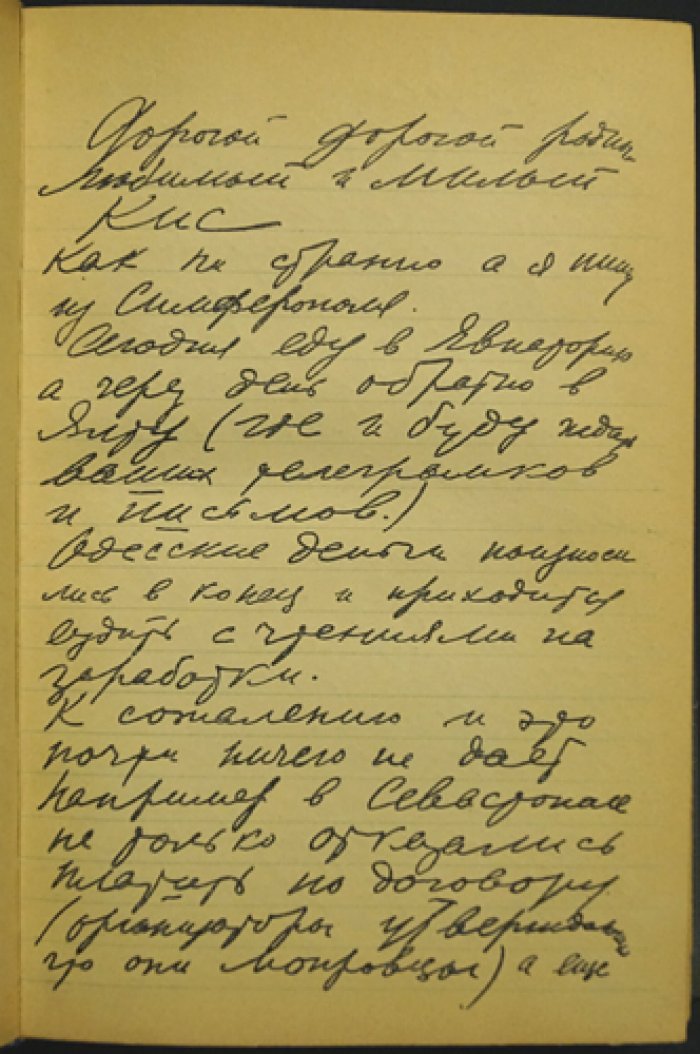 Дорогой дорогой родный
любимый и милый
Кис
Как ни странно а я пишу
из Симферополя.
Сегодня еду в Евпаторию
а через день обратно в
Ялту (где и буду ждать
ваших телеграмков
и письмов.)
Одесские деньги поизноси
лись в конец и приходится
ездить с чтениями на
заработки.
К сожалению и это
почти ничего не дает
Например в Севастополе
не только отказались
платить по договору
(организаторы утверждающие
что они мопровцы) а еще